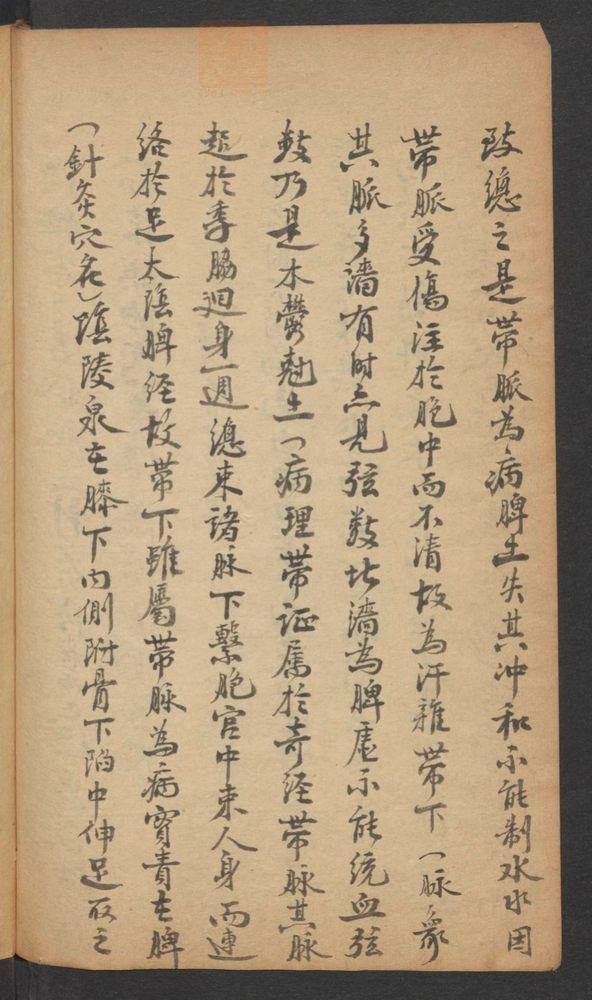 致總之是帶脈為病脾土失其冲和不能制水水因
帶脈受傷注於胞中而不清故為汗雜帶下一脉象
其脈多濇有时亦見弦数此濇為脾虛不能统血弦
数乃是木鬱尅土一病理帶证属於奇经帶脉其脉
起於季脇迴身一週總束諸脉下繫胞宮中束人身而連
络於足太陰脾经故帶下雖屬帶脉為病實責在脾
一針灸穴名）陰陵泉在膝下内側附骨下陷中伸足取之